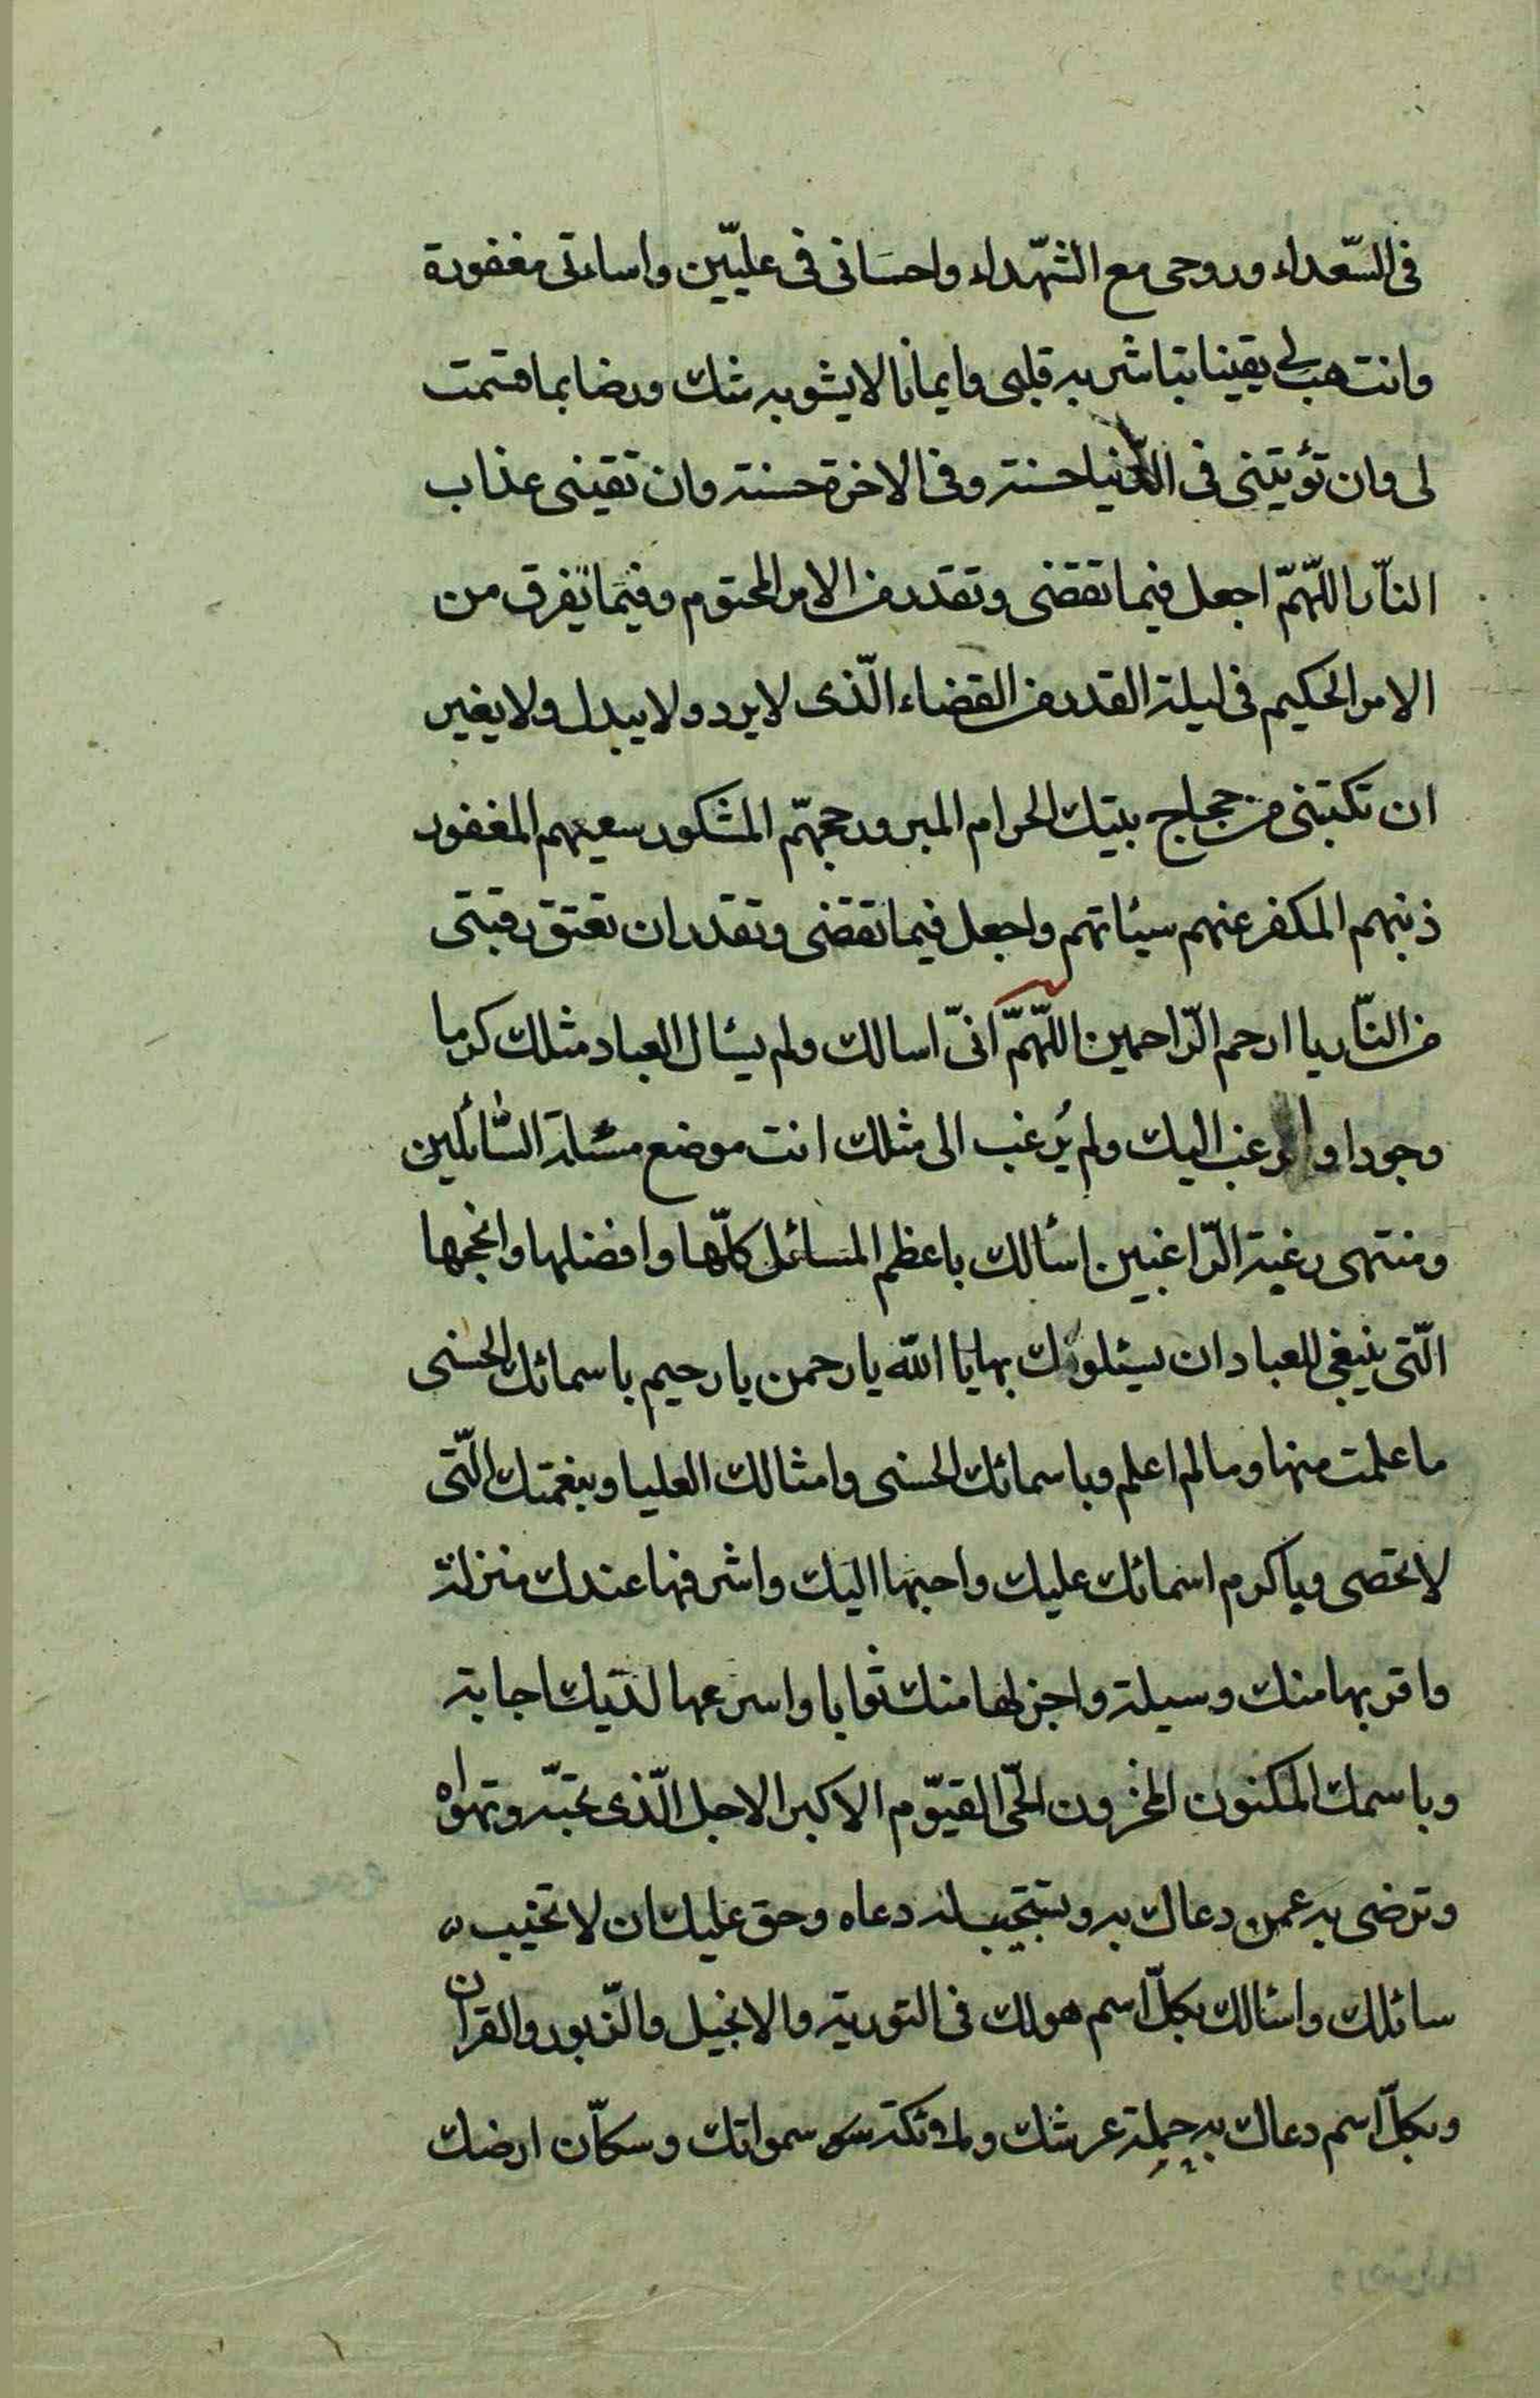 فى السّعداء وروحى مع الشّهداء واحسَانى فى عليّين واساءتى مغفورة
وانت هب لى يقينا تباشر به قلبى وايمانا لا يشوبه شك ورضا بما قسمت
لى وان تؤتينى فى الدّنيا حسنة وفى الاخرة حسنة وان تقينى عذاب
النّار اللّهمّ اجعل فيما تقضى وتقدر من الامر المحتوم وفيما تفرق من
الامر الحكيم فى ليلة القدر من القضاء الّذى لا يرد ولا يبدل ولا يغير
ان تكتبنى من حجاج بيتك الحرام المبرور حجهمّ المشكور سعيهم المغفور
ذنبهم المكفر عنهم سيئاتهم واجعل فيما تقضى وتقدر ان تعتق رقبتى
من النّار يا ارحم الرّاحمين اللّهمّ انىّ اسالك ولم يسئال العباد مثلك كرما
وجودا وارغب اليك ولم يُرغب الى مثلك انت موضع مسئلة السّائلين
ومنتهى رغبة الرّاغبين اسئالك باعظم المسائل كلّها وافضلها وانجحها
الّتى ينبغى للعباد ان يسئلونك بها يا الله يا رحمن يا رحيم باسمائك الحسنى
ما علمت منها وما لم اعلم وباسمائك الحسنى وامثالك العليا وبنعمتك الّتى
لا تحصى وباكرم اسمائك عليك واحبها اليك واشرفها عندك منزلة
واقربها منك وسيلة واجزلها منك ثوابا واسرعها لديك اجابة
وباسمك المكنون المخزون الحّى القيّوم الاكبر الاجل الّذى تحبّه وتهواه
وترضى به عمن دعاك به وتستجيب له دعاه وحق عليك ان لا تخيب
سائلك واسئالك بكلّ اسم هو لك فى التورية والانجيل والزّبور والقران
وبكلّ اسم دعاك به حملة عرشك وملائكة سمواتك وسكاّن ارضك